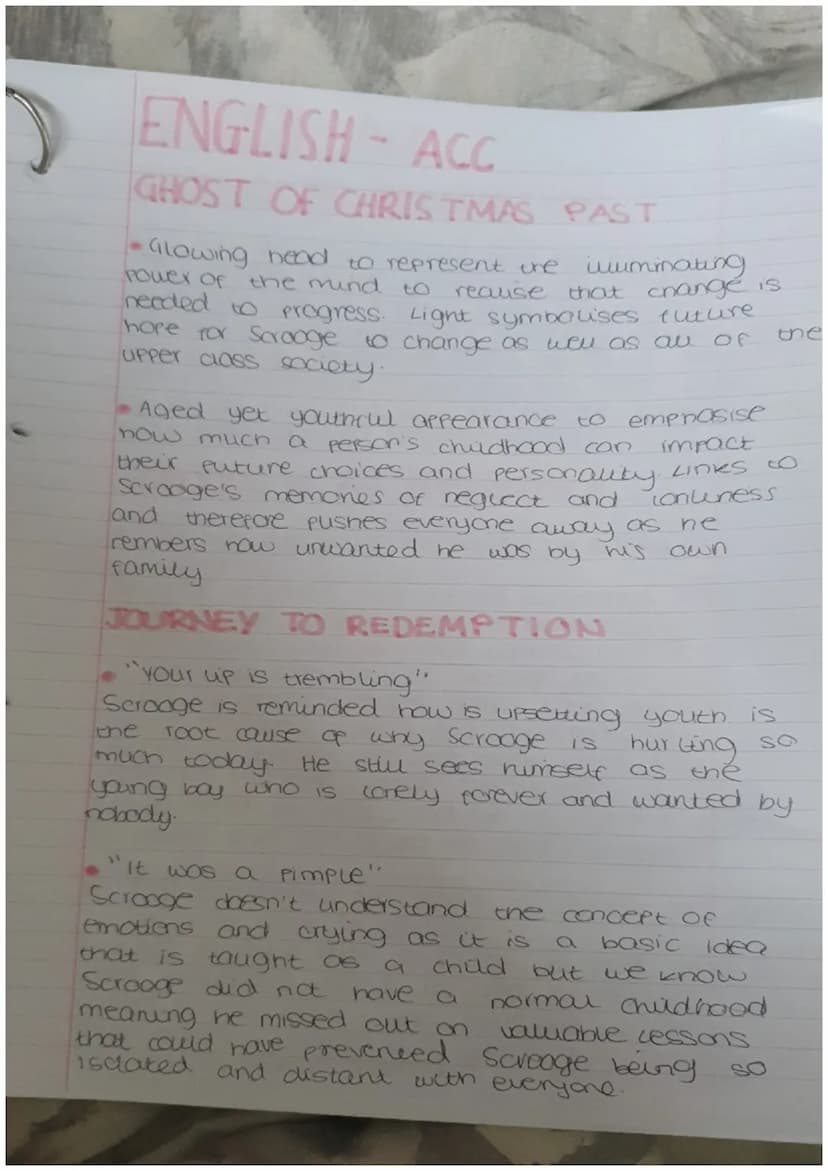 ENGLISH - ACC
GHOST OF CHRISTMAS PAST
• Glowing head to represent the illuminating
power of the mind to realise that change is
needed to progress. Light symbolises future
hope for Scrooge to change as well as all of the
upper class society.
• Aged yet youthful appearance to emphasise
how much a person's childhood can impact
their future choices and personality. Links to
Scrooge's memories of neglect and lonliness
and therefore pushes everyone away as he
rembers how unwanted he was by his own
family
JOURNEY TO REDEMPTION
• "Your lip is trembling"
Scrooge is reminded how is upsetting youth is
the root cause of why Scrooge is hurting so
much today. He still sees himself as the
young boy who is lonely forever and wanted by
nobody.
• "It was a pimple"
Scrooge doesn't understand the concept of
emotions and crying as it is a basic idea
that is taught as a child but we know
Scrooge did not have a normal childhood
meaning he missed out on valuable lessons
that could have prevented Scrooge being so
isolated and distant with everyone.